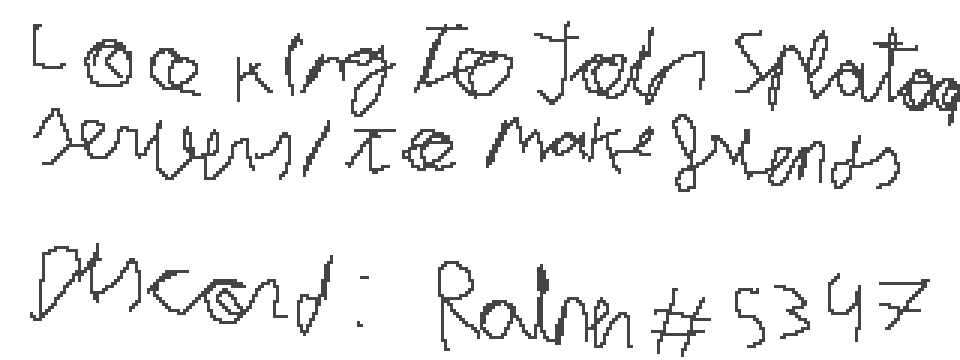 Looking to Join Splatoo
servers/to make friends
Discord: Rainer#5347